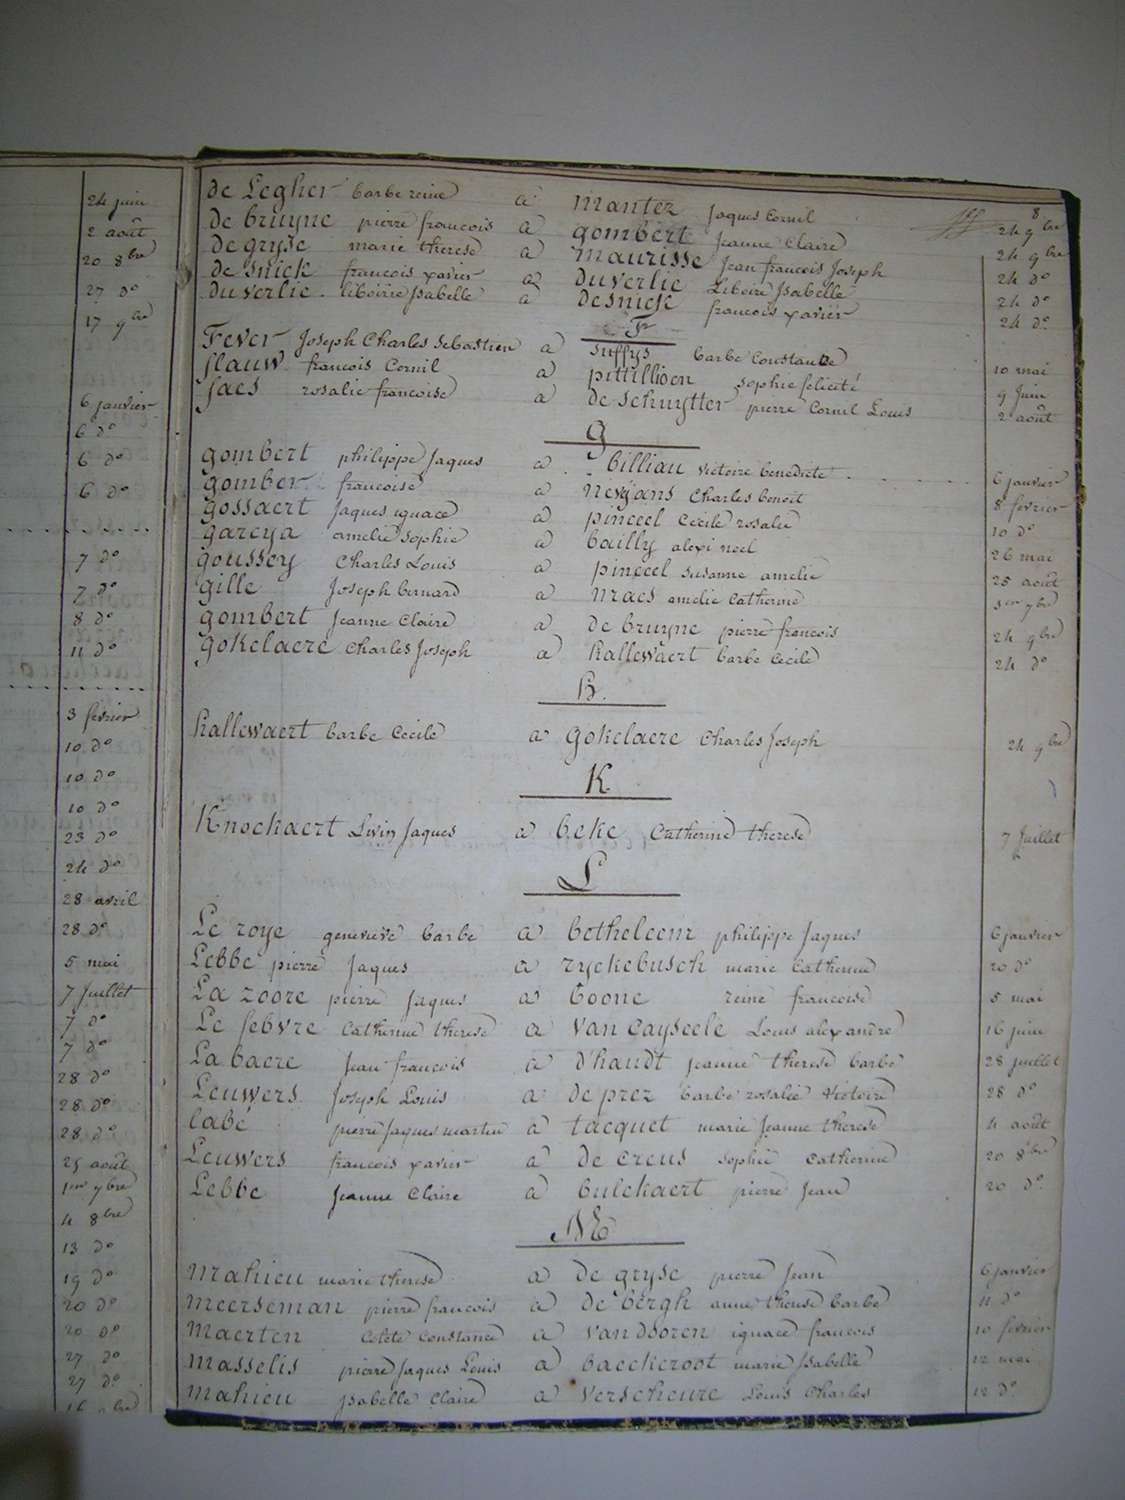 24 juin
2 août
20 8bre
27 do
17 9bre
6 janvier
6 do
6 do
6 do
7 do
7 do
8 do
11 do
3 fevrier
10 do
10 do
10 do
23 do
24 do
28 avril
28 do
5 mai
7 Juillet
7 do
7 do
28 do
28 do
28 do
25 août
1er 7bre
4 8bre
13 do
19 do
20 do
20 do
27 do
27 do
8
de Legher barbe reine a mantez Jaques Cornil 24 9bre
de bruyne pierre francois a gombert Jeanne Claire 24 9bre
de gryse marie therese a maurisse Jean francois Joseph 24 do
de snick francois xavier a duverlie Liboire Isabelle 24 do
duverlie liboire Isabelle a desnick francois xavier 24 do
F
Fever Joseph Charles Sebastien a suffys barbe Constance 10 mai
flauw francois Cornil a pittillioen sophie felicité 9 Juin
faes rosalie francoise a de schuytter pierre Cornil Louis 2 août
g
gombert philippe Jaques a billiau victoire benedicte 6 janvier
gomber francoise a neyjans Charles benoit 8 fevrier
gossaert Jaques ignace a pinceel Cecile rosalie 10 do
garcya amelie sophie a bailly alexi noel 26 mai
goussey Charles Louis a pinceel susanne amelie 25 août
gille Joseph bernard a maes amelie Catherine 1er 7bre
gombert Jeanne Claire a de bruyne pierre francois 24 9bre
gokelaere Charles Joseph a hallewaert barbe Cecile 24 do
H.
hallewaert barbe Cecile a gokelaere Charles Joseph 24 9bre
K
Knockaert Livin Jaques a beke Catherine therese 7 Juillet
L
Le roye genevieve barbe a botheleem philippe Jaques 6 janvier
Lebbe pierre Jaques a ryckebusch marie Catherine 20 do
La zoore pierre Jaques a boone reine francoise 5 mai
Le febvre Catherine therese a van Cayseele Louis alexandre 16 juin
La baere Jean francois a d'haudt Jeanne therese barbe 28 juillet
Leuwers Joseph Louis a deprez barbe rosalie victoire 28 do
labé pierre Jaques martin a tacquet marie Jeanne therese 4 août
Leuwers francois xavier a de creus sophie Catherine 20 8bre
Lebbe Jeanne Claire a bulckaert pierre Jean 20 do
M
mahieu marie therese a de gryse pierre Jean 6 janvier
meerseman pierre francois a de bergh anne therese barbe 11 do
maerten Colete Constance a vandooren ignace francois 10 fevrier
masselis pierre Jaques Louis a baeckeroot marie Isabelle 12 mai
mahieu Isabelle Claire a verscheure Louis Charles 12 do